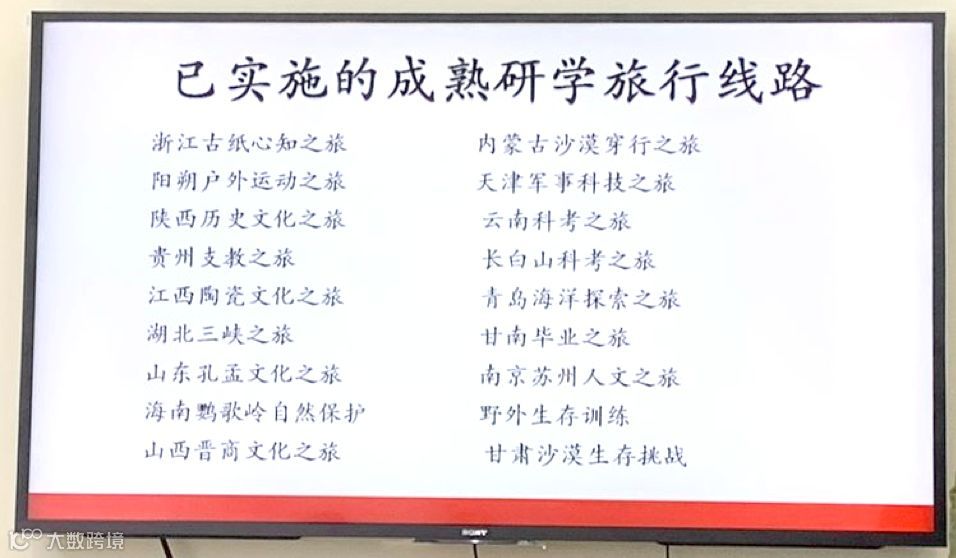 已实施的成熟研学旅行线路
浙江古纸心知之旅
阳朔户外运动之旅
陕西历史文化之旅
贵州支教之旅
江西陶瓷文化之旅
湖北三峡之旅
山东孔孟文化之旅
海南鹦歌岭自然保护
山西晋商文化之旅
内蒙古沙漠穿行之旅
天津军事科技之旅
云南科考之旅
长白山科考之旅
青岛海洋探索之旅
甘南毕业之旅
南京苏州人文之旅
野外生存训练
甘肃沙漠生存挑战
SONY
大数跨境